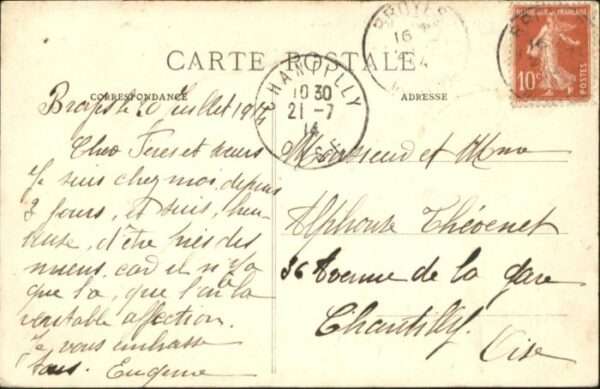 CARTE POSTALE
CORRESPONDANCE
ADRESSE
CHANTILLY
10 30
21 - 7
14
OISE
16
RÉPUBLIQUE FRANÇAISE
10c
POSTES
le 20 Juillet 1914
Cher Freres et seurs
Je suis chez moi, depuis
3 jours, et suis, heu-
reuse, d'être près des
miens, car il n'y a
que la, que l'ai la
veritable affection.
Je vous embrasse
tous. Eugenie
Monsieur et Mme
Alphonse Thévenet
36 Avenue de la gare
Chantilly.
Oise